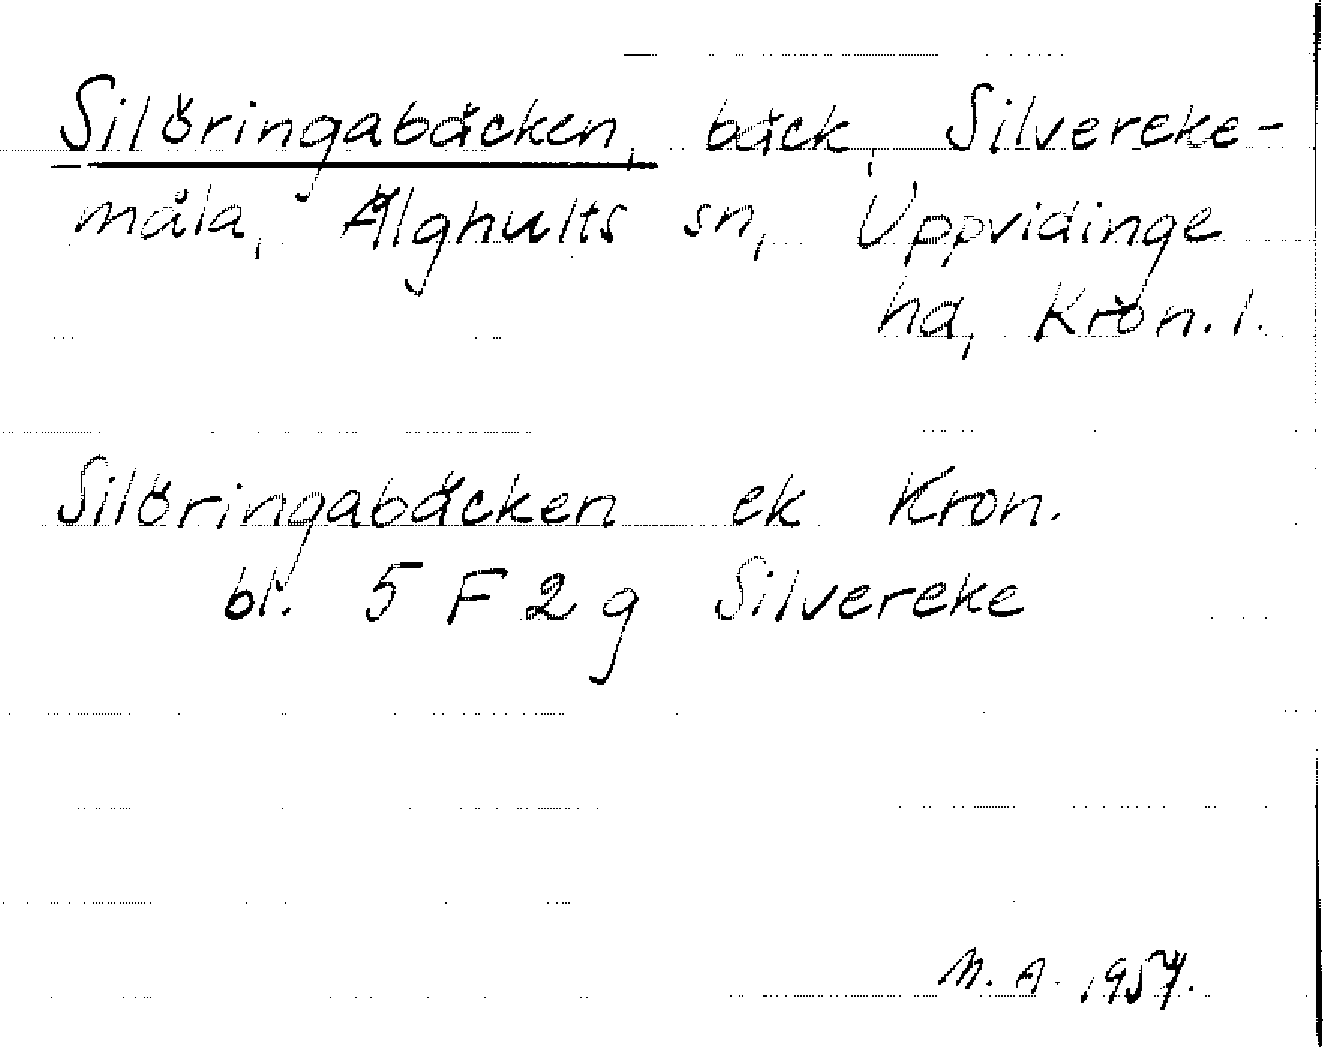 Silöringabäcken, bäck, Silvereke-
måla, Älghults sn, Uppvidinge
hd, Kron. l.
Silöringabäcken ek Kron.
bl. 5 F 2 g Silvereke
M. A. 1957.